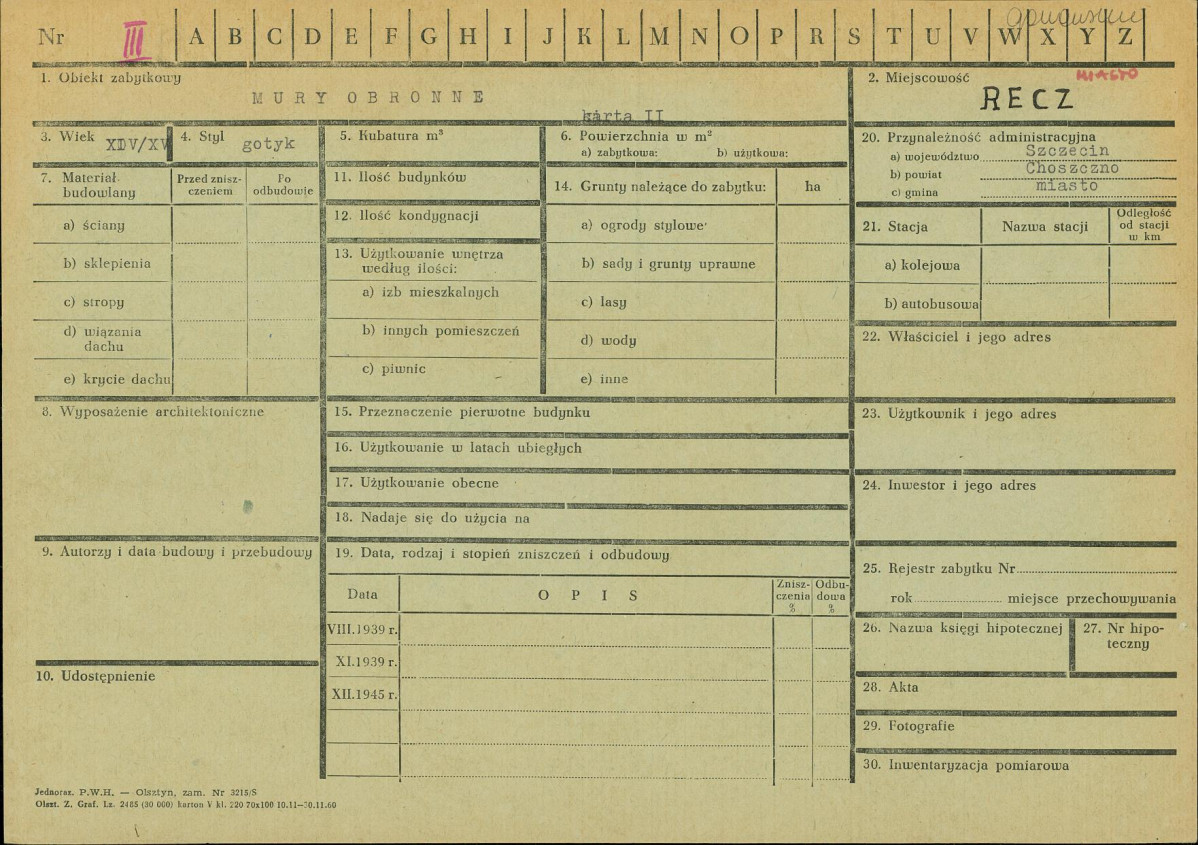 Nr III A B C D E F G H I J K L M N O P R S T U V W X Y Z
1. Obiekt zabytkowy
MURY OBRONNE
karta II
2. Miejscowość
MIASTO
RECZ
3. Wiek XIV/XV
4. Styl gotyk
5. Kubatura m³
6. Powierzchnia w m²
a) zabytkowa: b) użytkowa:
20. Przynależność administracyjna
a) województwo Szczecin
b) powiat Choszczno
c) gmina miasto
7. Materiał budowlany
Przed zniszczeniem
Po odbudowie
a) ściany
b) sklepienia
c) stropy
d) wiązania dachu
e) krycie dachu
11. Ilość budynków
12. Ilość kondygnacji
13. Użytkowanie wnętrza
według ilości:
a) izb mieszkalnych
b) innych pomieszczeń
c) piwnic
14. Grunty należące do zabytku: ha
a) ogrody stylowe
b) sady i grunty uprawne
c) lasy
d) wody
e) inne
21. Stacja
Nazwa stacji
Odległość
od stacji
w km
a) kolejowa
b) autobusowa
22. Właściciel i jego adres
8. Wyposażenie architektoniczne
15. Przeznaczenie pierwotne budynku
16. Użytkowanie w latach ubiegłych
17. Użytkowanie obecne
18. Nadaje się do użycia na
23. Użytkownik i jego adres
24. Inwestor i jego adres
9. Autorzy i data budowy i przebudowy
19. Data, rodzaj i stopień zniszczeń i odbudowy
Data
OPIS
Znisz-
czenia
%
Odbu-
dowa
%
VIII.1939 r.
XI.1939 r.
XII.1945 r.
25. Rejestr zabytku Nr
rok miejsce przechowywania
26. Nazwa księgi hipotecznej
27. Nr hipo-
teczny
10. Udostępnienie
28. Akta
29. Fotografie
30. Inwentaryzacja pomiarowa
Jednoraz. P.W.H. — Olsztyn, zam. Nr 3215/S
Olszt. Z. Graf. Lz. 2485 (30 000) karton V kl. 220 70x100 10.11—30.11.60